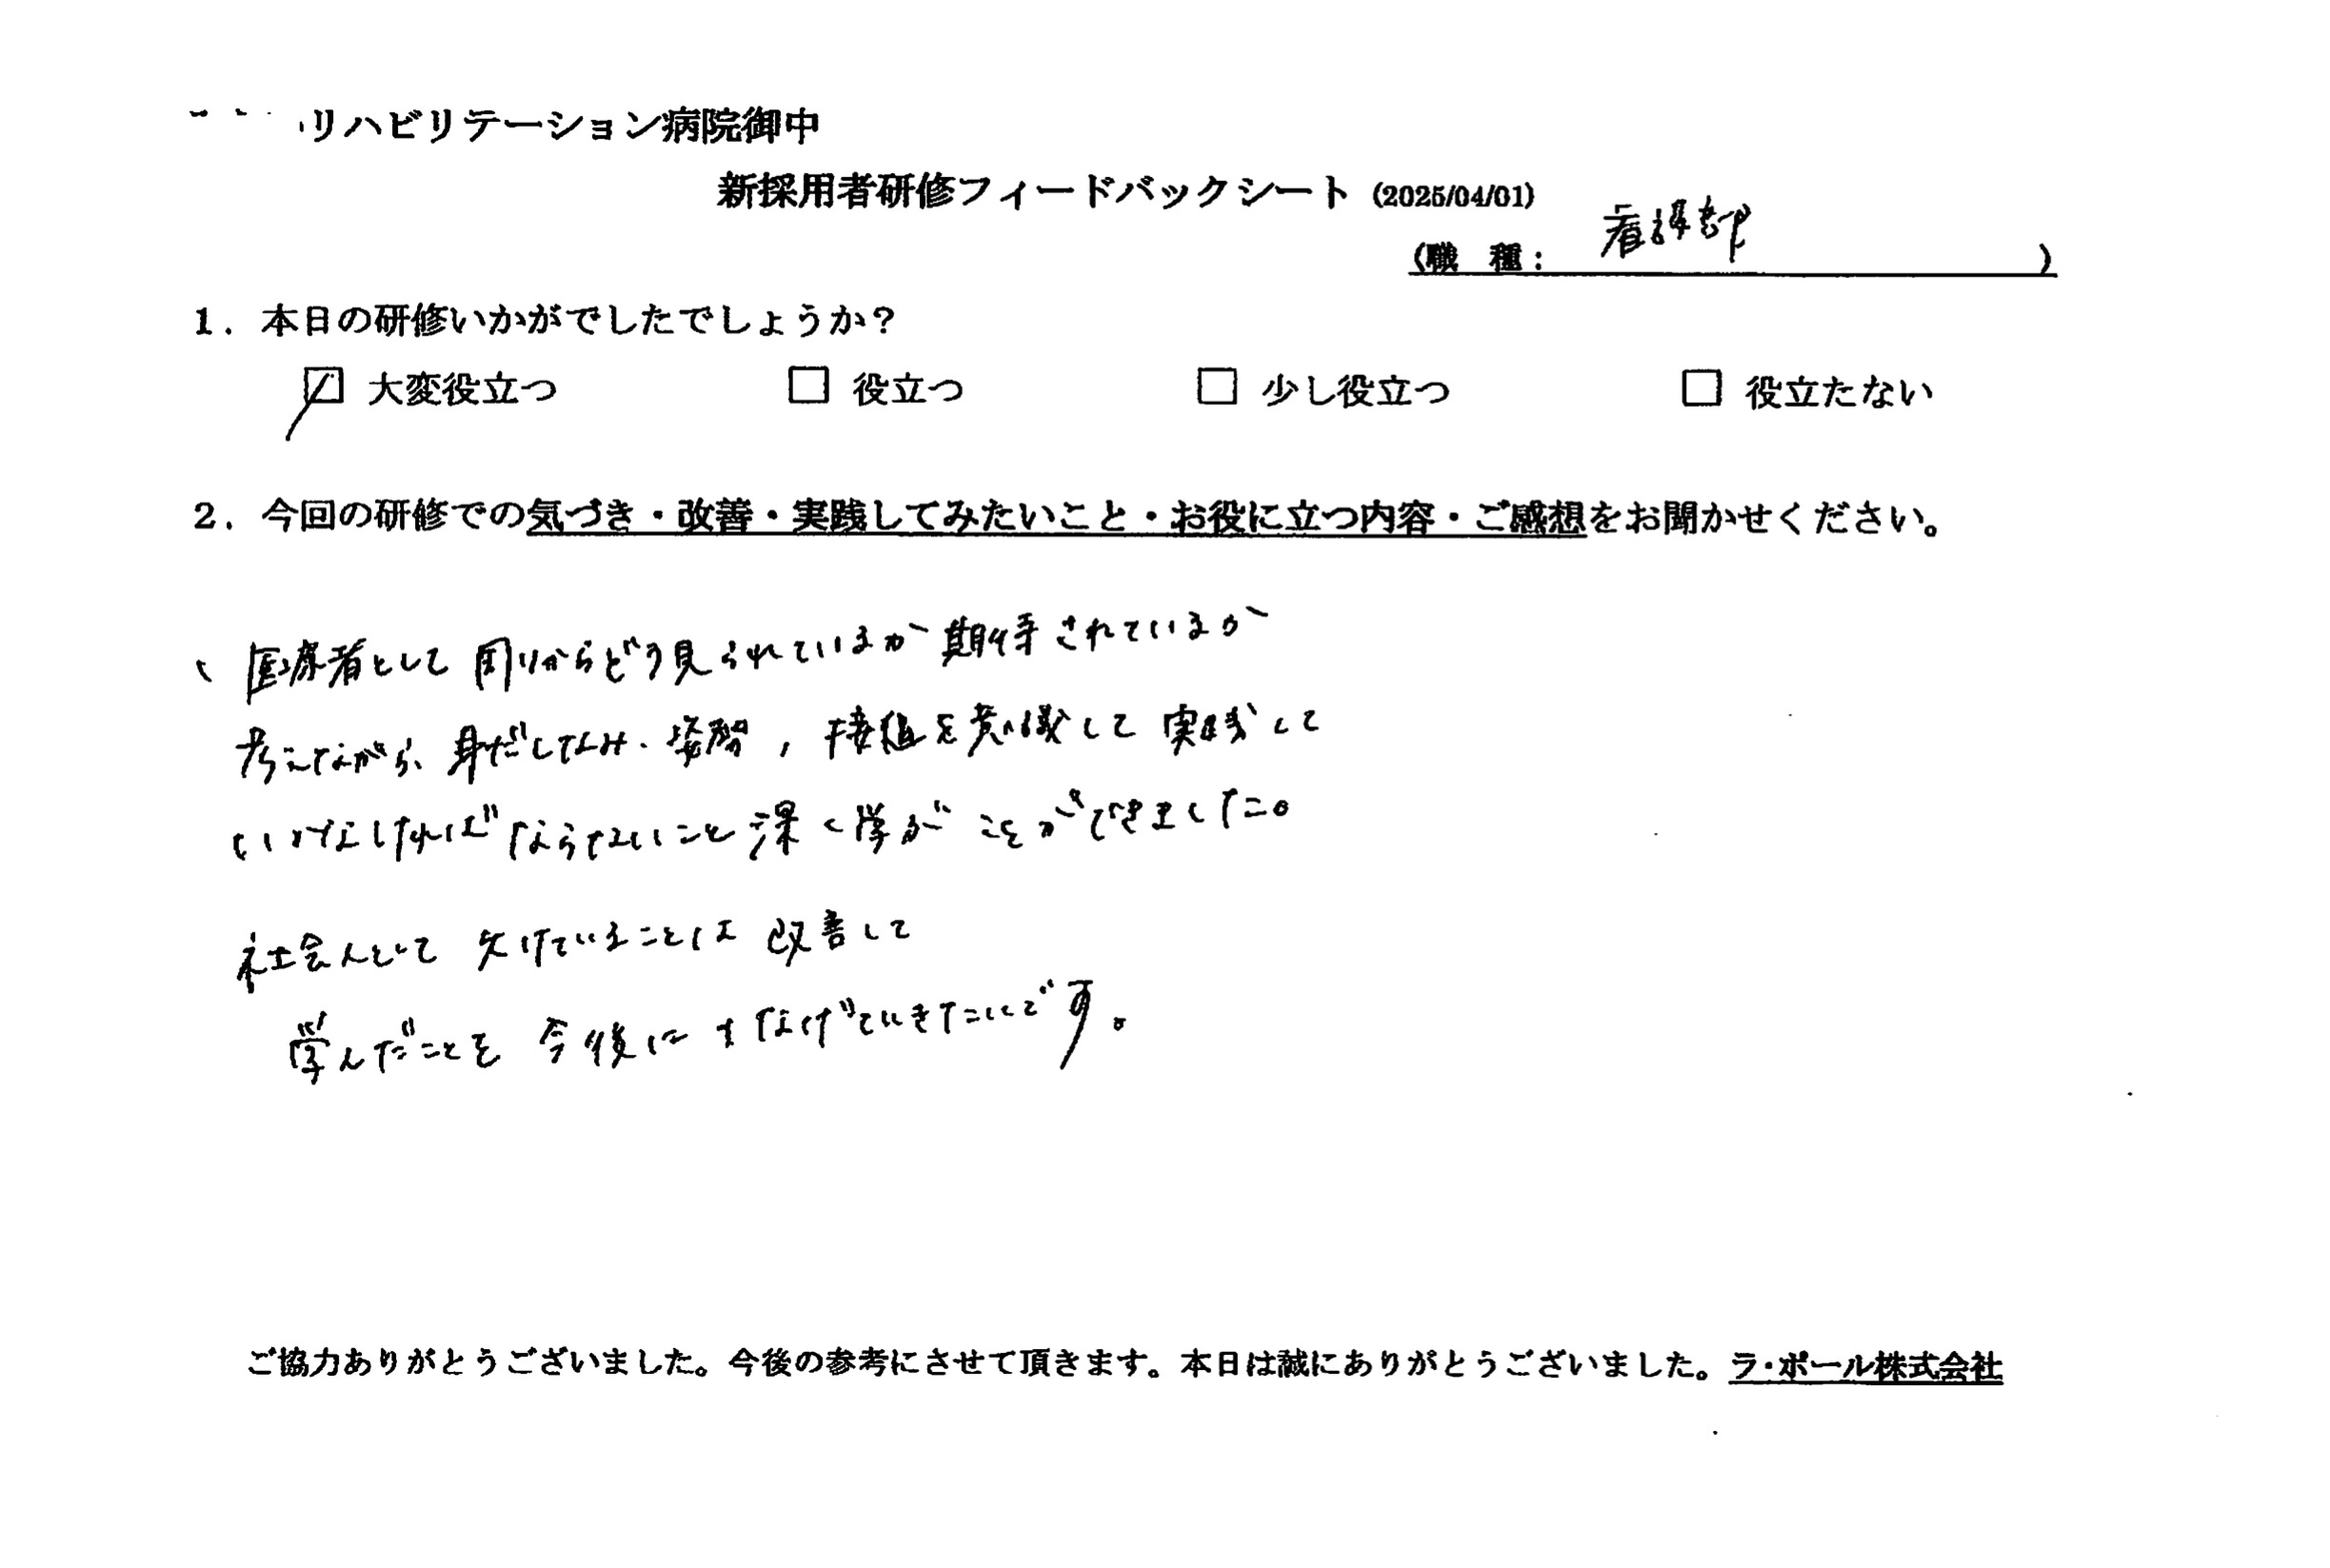 リハビリテーション病院御中
新採用者研修フィードバックシート (2025/04/01)
(職 種: 看護部 )
1. 本日の研修いかがでしたでしょうか?
☑ 大変役立つ □ 役立つ □ 少し役立つ □ 役立たない
2. 今回の研修での気づき・改善・実践してみたいこと・お役に立つ内容・ご感想をお聞かせください。
、医療者として 周りからどう見られているか 期待されているか
考えながら、身だしなみ・姿勢, 接遇を意識して 実践して
いかなければならないこと 深く学ぶ ことができました。
社会人として 欠けていることは 改善して
学んだことを 今後に つなげていきたいです。
ご協力ありがとうございました。今後の参考にさせて頂きます。本日は誠にありがとうございました。ラ・ポール株式会社